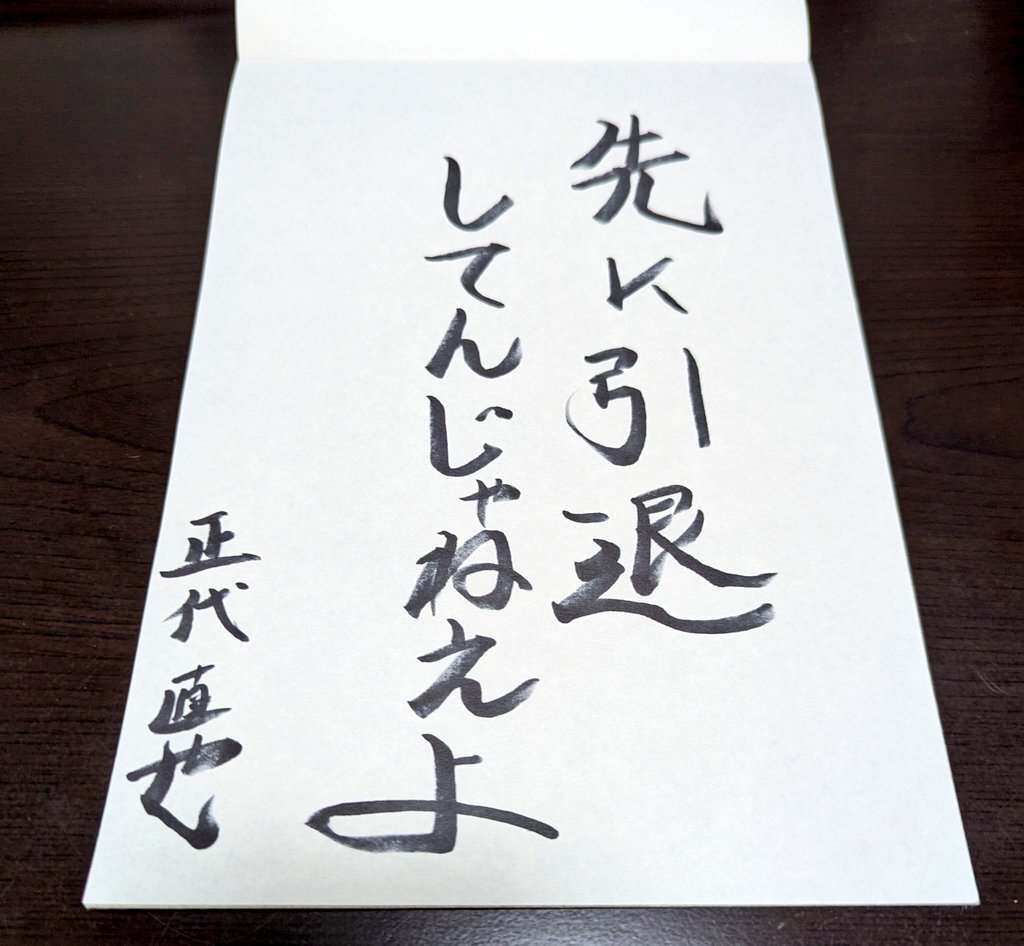 先に引退
してんじゃねえよ
正代直也